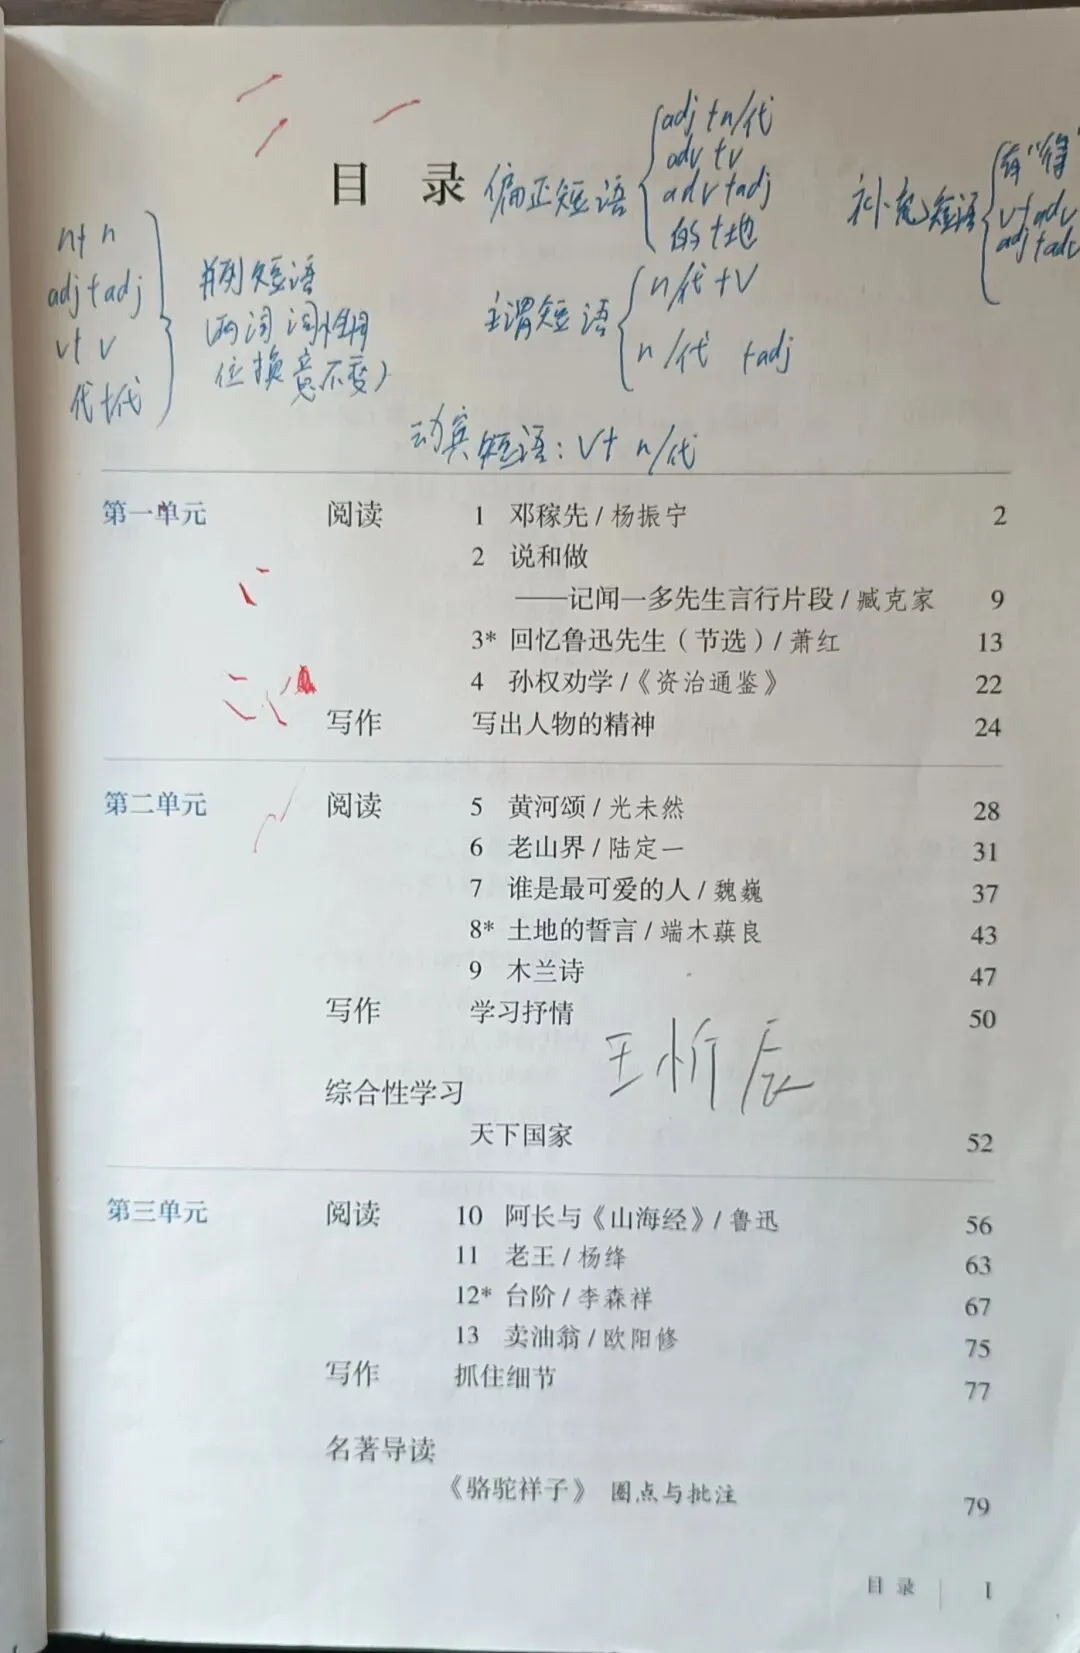 目 录
偏正短语
adj+n/代
adv+v
adv+adj
的+地
补充短语
有"得"
v+adv
adj+adv
n+n
adj+adj
v+v
代+代
并列短语
(两词词性相同
位换意不变)
主谓短语
n/代+v
n/代 +adj
动宾短语:v+ n/代
第一单元 阅读 1 邓稼先/杨振宁 2
2 说和做
——记闻一多先生言行片段/臧克家 9
3* 回忆鲁迅先生(节选)/萧红 13
4 孙权劝学/《资治通鉴》 22
写作 写出人物的精神 24
第二单元 阅读 5 黄河颂/光未然 28
6 老山界/陆定一 31
7 谁是最可爱的人/魏巍 37
8* 土地的誓言/端木蕻良 43
9 木兰诗 47
写作 学习抒情 50
王忻辰
综合性学习
天下国家 52
第三单元 阅读 10 阿长与《山海经》/鲁迅 56
11 老王/杨绛 63
12* 台阶/李森祥 67
13 卖油翁/欧阳修 75
写作 抓住细节 77
名著导读
《骆驼祥子》 圈点与批注 79
目录 1